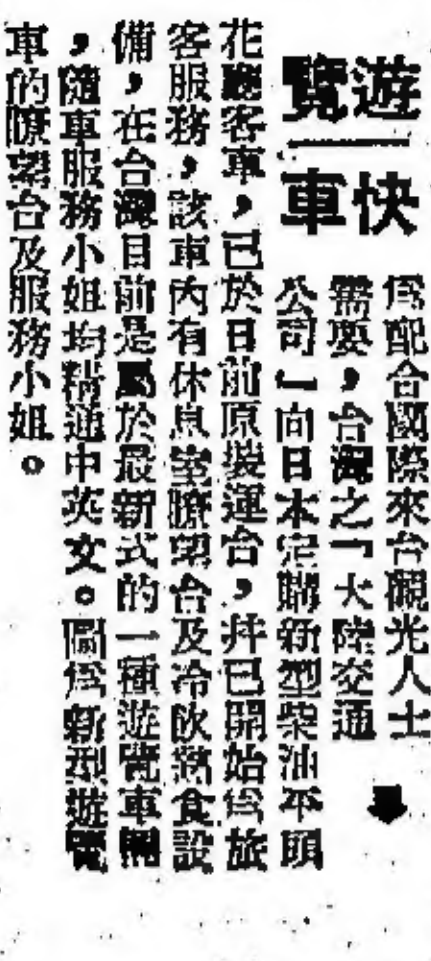 遊覽
快車
爲配合國際來台觀光人士
需要，台灣之「大陸交通
公司」向日本定購新型柴油平頭
花廳客車，已於日前原裝運台，并已開始爲旅
客服務，該車內有休息室瞭望台及冷飲熱食設
備，在台灣目前是屬於最新式的一種遊覽車輛
，隨車服務小姐均精通中英文。圖爲新型遊覽
車的瞭望台及服務小姐。